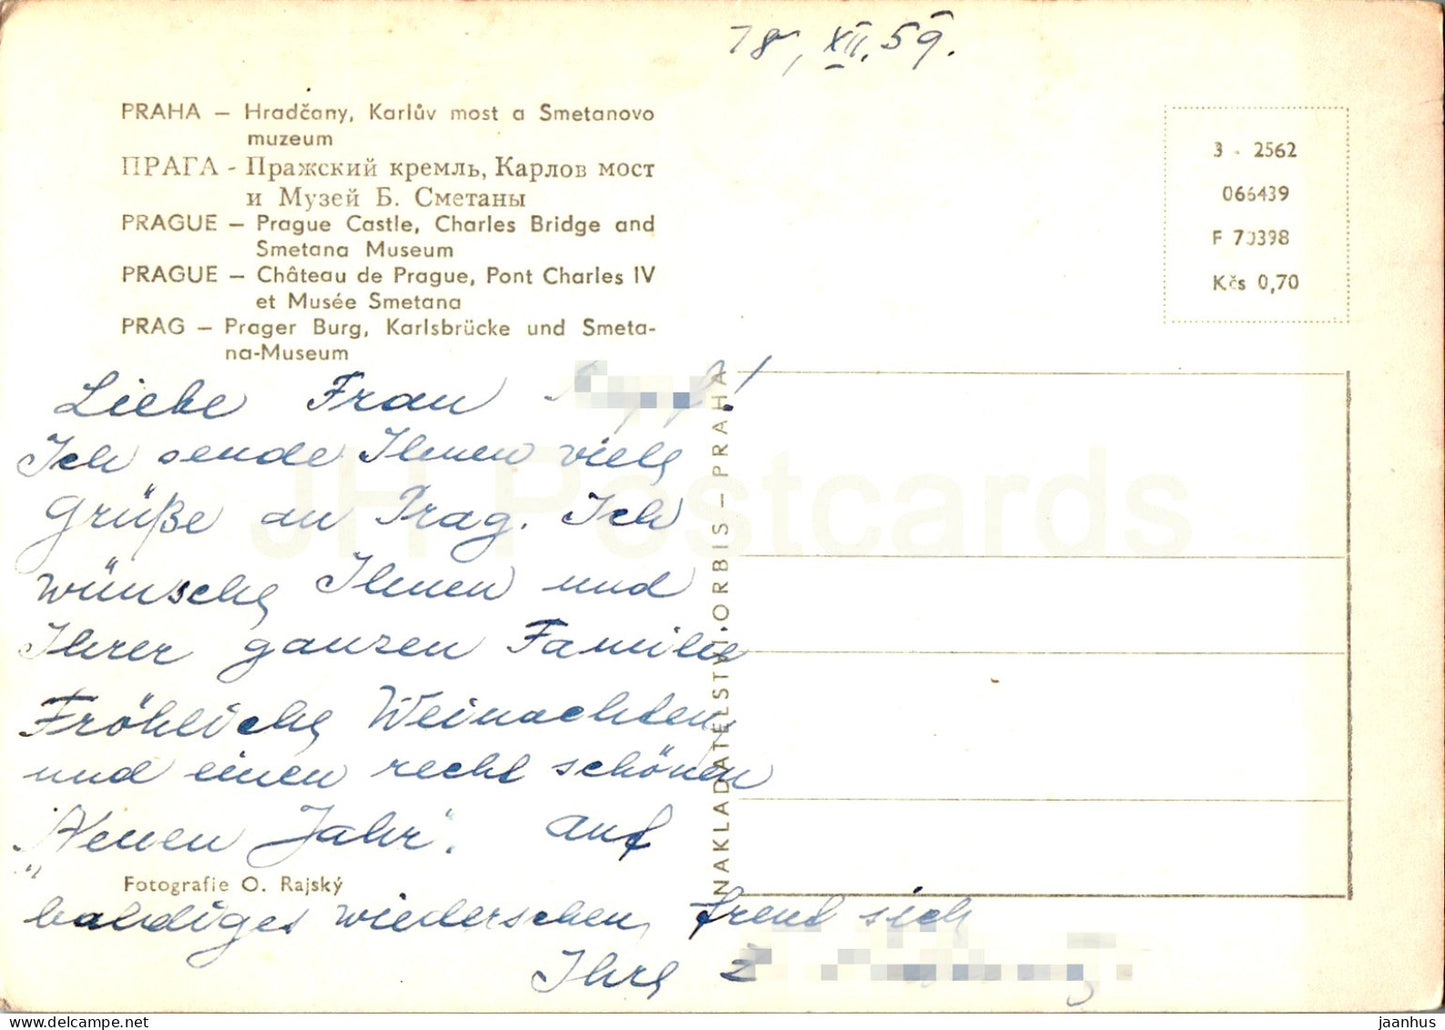 18, XII. 59.
PRAHA – Hradčany, Karlův most a Smetanovo
muzeum
ПРАГА - Пражский кремль, Карлов мост
и Музей Б. Сметаны
PRAGUE – Prague Castle, Charles Bridge and
Smetana Museum
PRAGUE – Château de Prague, Pont Charles IV
et Musée Smetana
PRAG – Prager Burg, Karlsbrücke und Smeta-
na-Museum
3 - 2562
066439
F 70398
Kčs 0,70
Liebe Frau !
Ich sende Ihnen viele
Grüße au Prag. Ich
wünsche Ihnen und
Ihrer ganzen Familie
Fröhliche Weinachten,
und einen recht schönen
"Neuen Jahr". Auf
Fotografie O. Rajský
baldiges wiedersehen, freut sich
Ihre
NAKLADATELSTVÍ ORBIS – PRAHA
JH Postcards
jaanhus @ delcampe.net